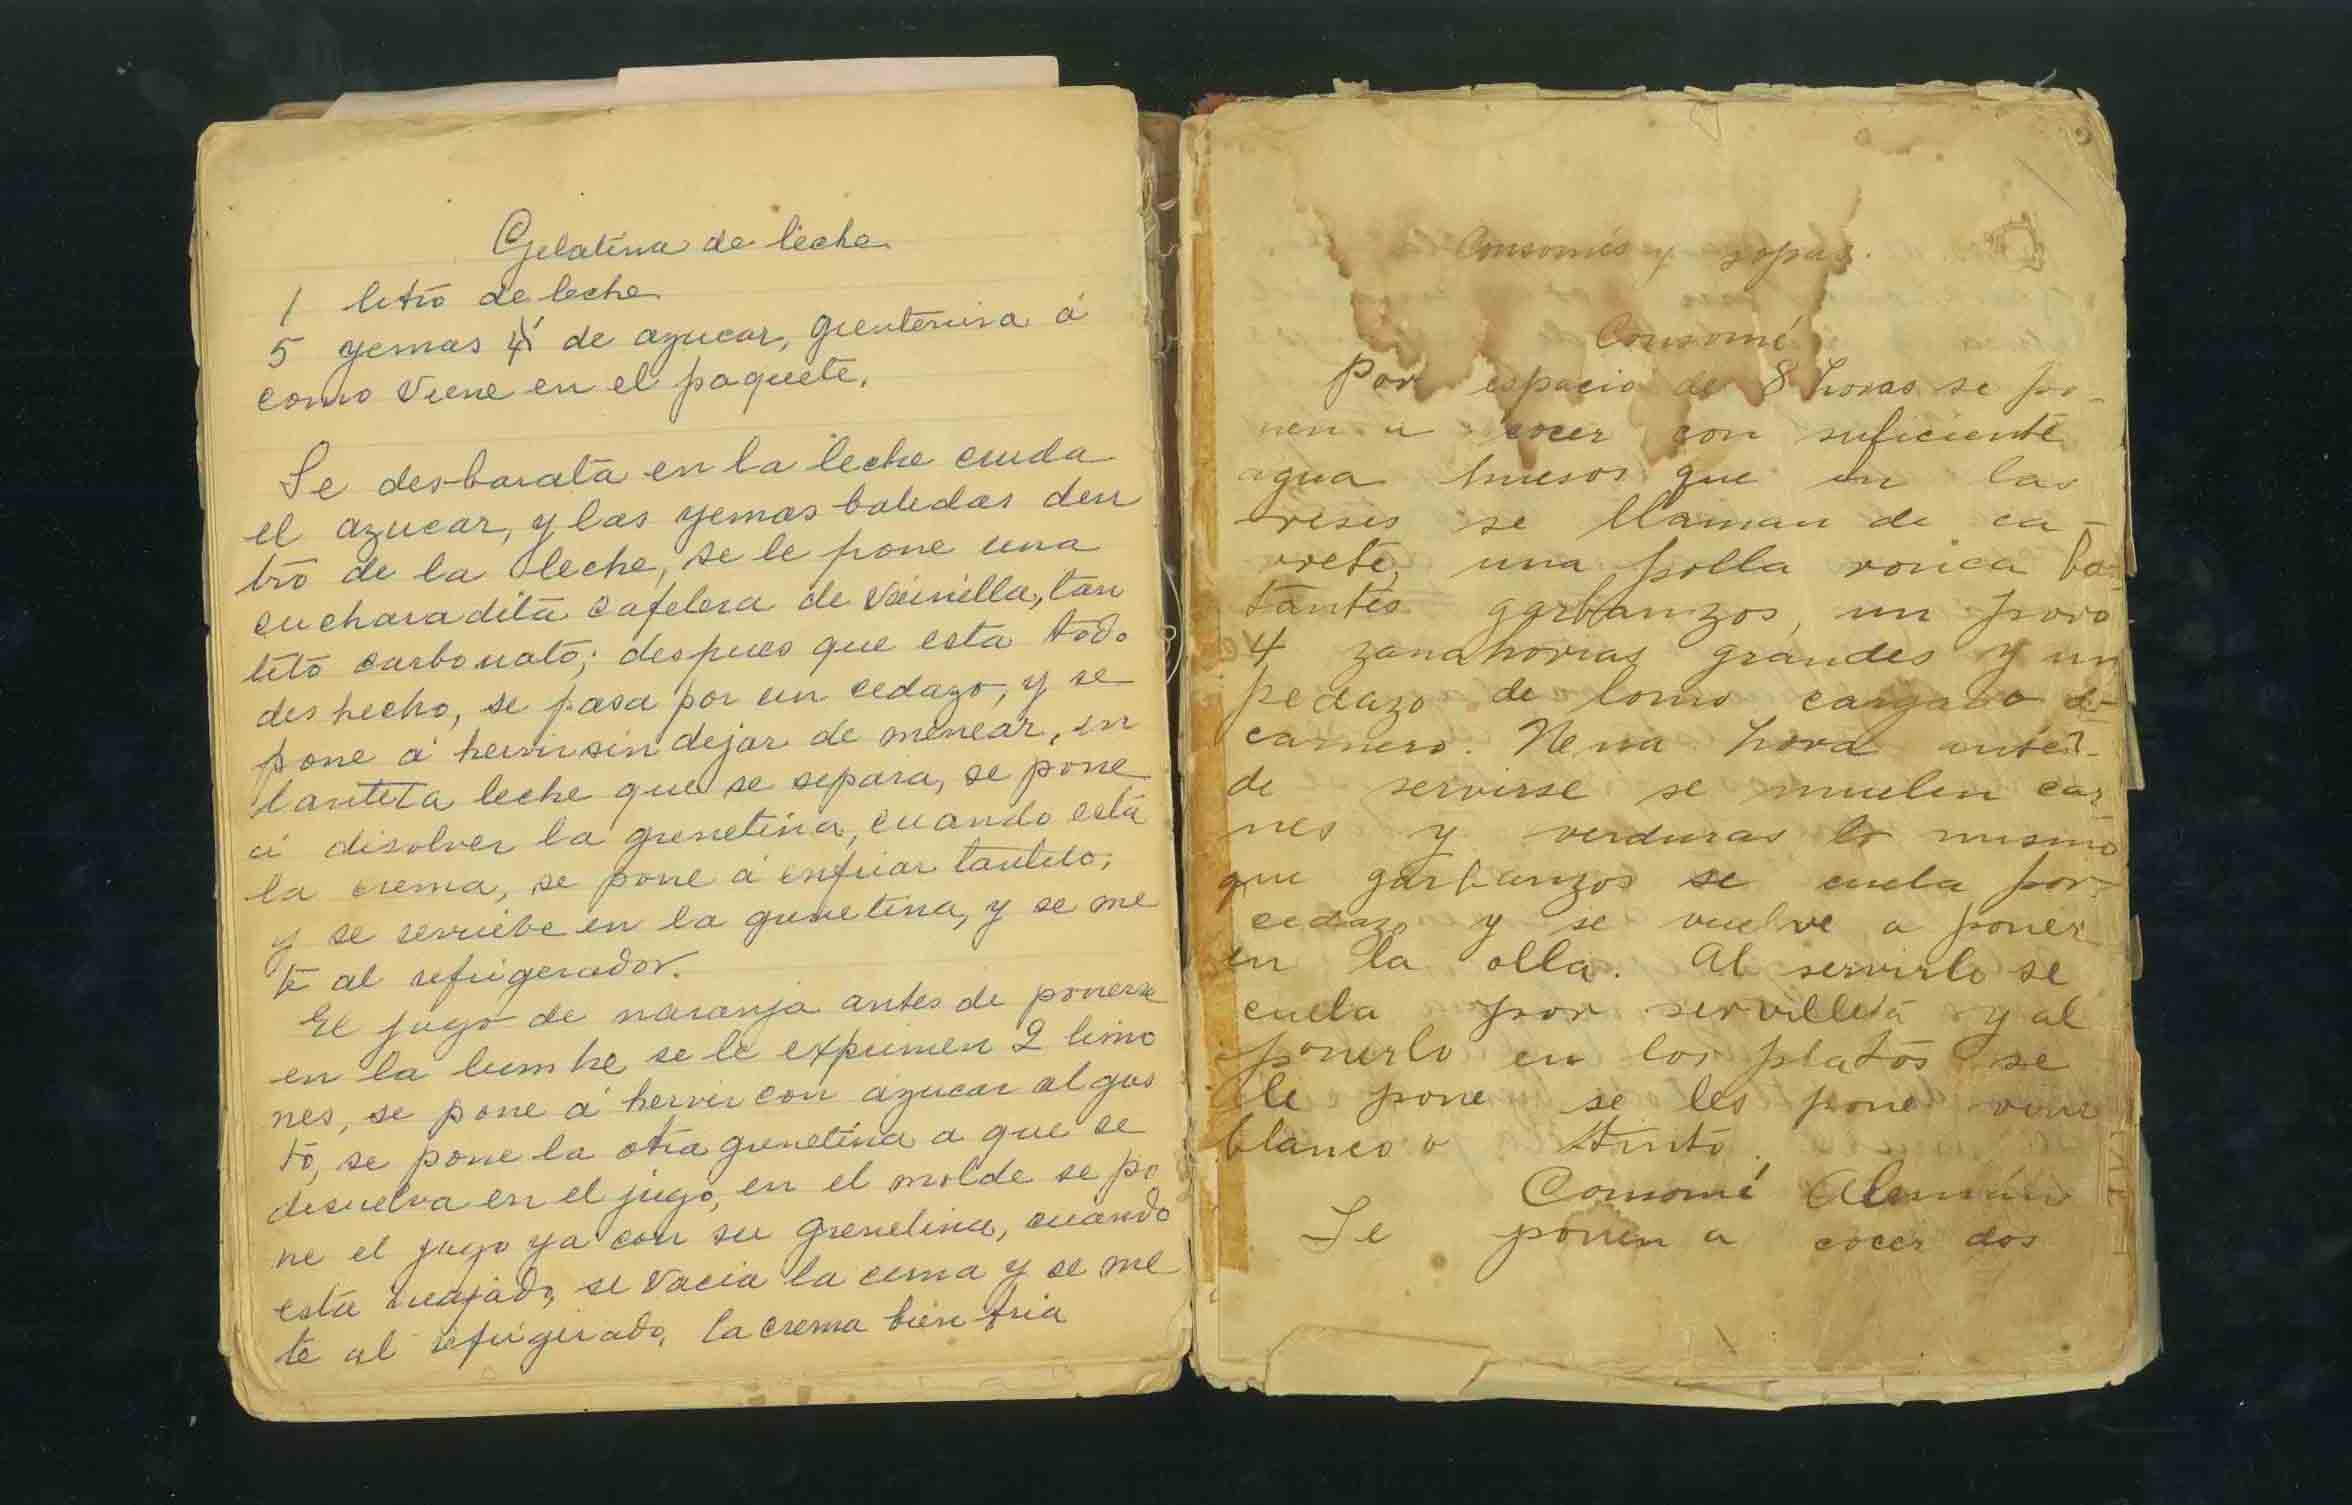 Gelatina de leche
1 litro de leche
5 yemas de azucar, grenterina á
como viene en el paquete.
Se desbarata en la leche cruda
el azucar, y las yemas batidas den
tro de la leche, se le pone una
cucharadita cafetera de Vainilla, tan
tito carbonato; despues que esta todo
deshecho, se pasa por un cedazo, y se
pone á hervir sin dejar de menear, en
tantita leche que se separa, se pone
á disolver la grenetina, cuando está
la crema, se pone á enfriar tantito,
y se en la grenetina, y se me
te al refrigerador.
El jugo de naranja antes de ponerse
en la lumbre se le exprimen 2 limo
nes, se pone á hervir con azucar al gus
to, se pone la otra grenetina a que se
disuelva en el jugo, en el molde se po
ne el jugo ya con su grenetina, cuando
esta cuajado, se vacia la crema y se me
te al refrigerado, la crema bien fria
Consomés y sopas.
Consomé
Por espacio de 8 horas se po-
nen a cocer con suficiente
agua huesos que en las
reses se llaman de ca-
rrete, una polla ronca bas-
tantes garbanzos, un poro
4 zanahorias grandes y un
pedazo de lomo cargado de
carnero. Nena hora antes
de servirse se muelen car
nes y verduras lo mismo
que garbanzos se cuela por
cedazo y se vuelve a poner
en la olla. Al servirlo se
cuela por servilleta y al
ponerlo en los platos se
le pone se les pone vino
blanco o tinto.
Consomé Alemán
Se ponen a cocer dos